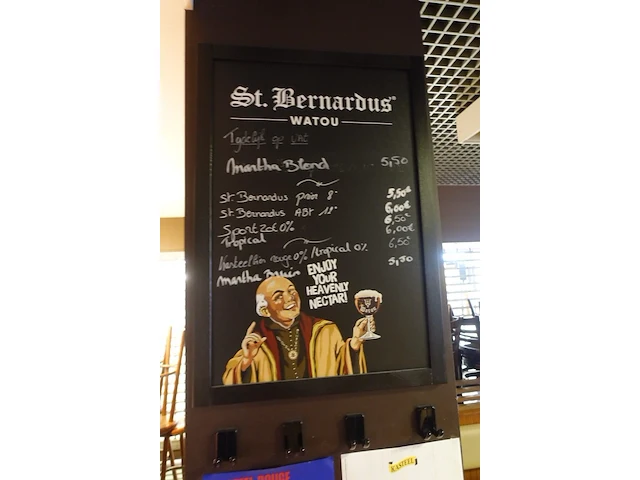 St. Bernardus
WATOU
Tydelijk op vat
Martha Blond 5,50
St. Bernardus prior 8° 5,50€
St. Bernardus ABt 12° 6,00€
Sport Zot 0% 6,50€
Tropical 6,00€
Kasteelbier rouge 0% /tropical 0% 6,50€
Martha Bruin 5,50
ENJOY
YOUR
HEAVENLY
NECTAR!
KASTEEL
ROUGE